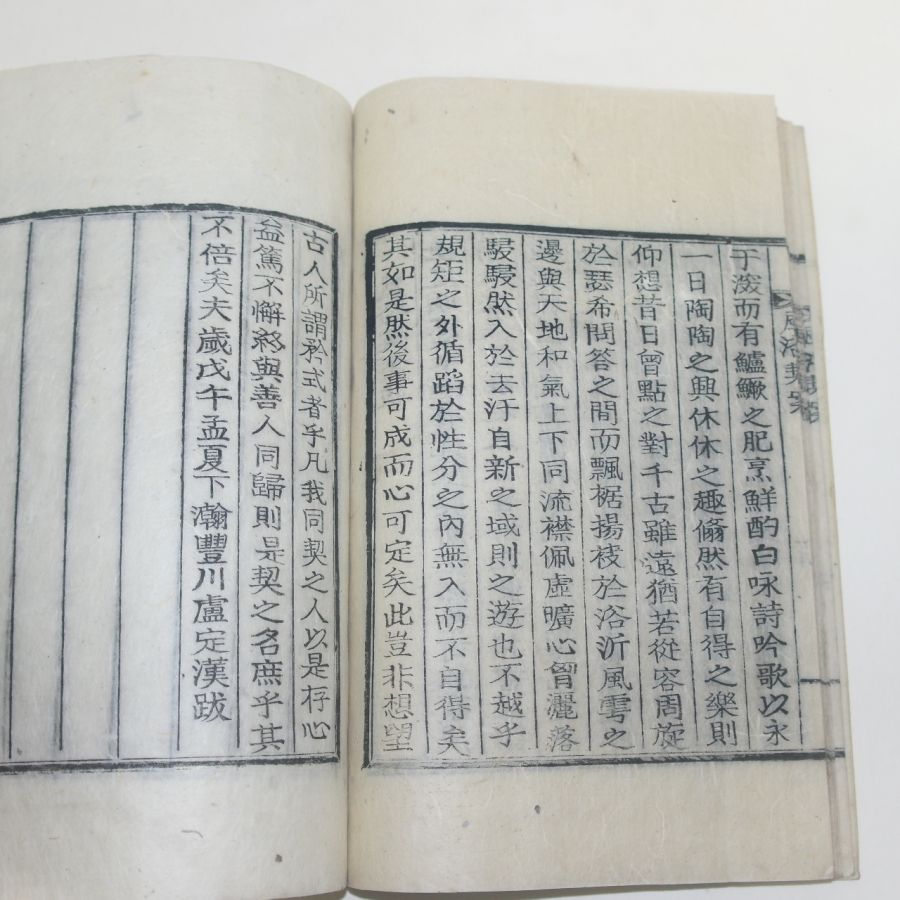 于潑而有鱸鱖之肥烹鮮酌白咏詩吟歌以永
一日陶陶之興休休之趣翛然有自得之樂則
仰想昔日曾點之對千古雖遠猶若從容周旋
於瑟希問答之間而飄裾揚袂於浴沂風雩之
邊與天地和氣上下同流襟佩虛曠心胷灑落
駸駸然入於去汙自新之域則之遊也不越乎
規矩之外循蹈於性分之內無入而不自得矣
其如是然後事可成而心可定矣此豈非想望
古人所謂矜式者乎凡我同契之人以是存心
益篤不懈終與善人同歸則是契之名庶乎其
不倍矣夫歲戊午孟夏下瀚豐川盧定漢跋